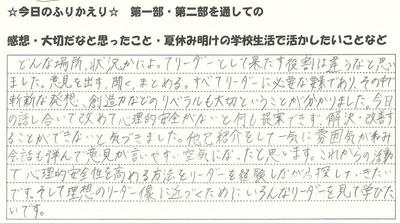 ☆今日のふりかえり☆　第一部・第二部を通しての
感想・大切だなと思ったこと・夏休み明けの学校生活で活かしたいことなど
どんな場所、状況かによってリーダーとして果たす役割は違うなと思い
ました。意見を出す、聞く、まとめる。すべてリーダーに必要な要素であり、その中で
斬新な発想、創造力などのリベラルも大切ということが分かりました。今日
の話し合いで改めて心理的安全がないと何も提案できず、解決・改善す
ることができないと気づきました。他己紹介をして一気に雰囲気が和み
会話も弾んで意見が言いやすい空気になったと思います。これからの活動
で心理的安全性を高める方法をリーダーを経験しながら探していきたい
です。そして理想のリーダー像に近づくためにいろんなリーダーを見て学びた
いです。